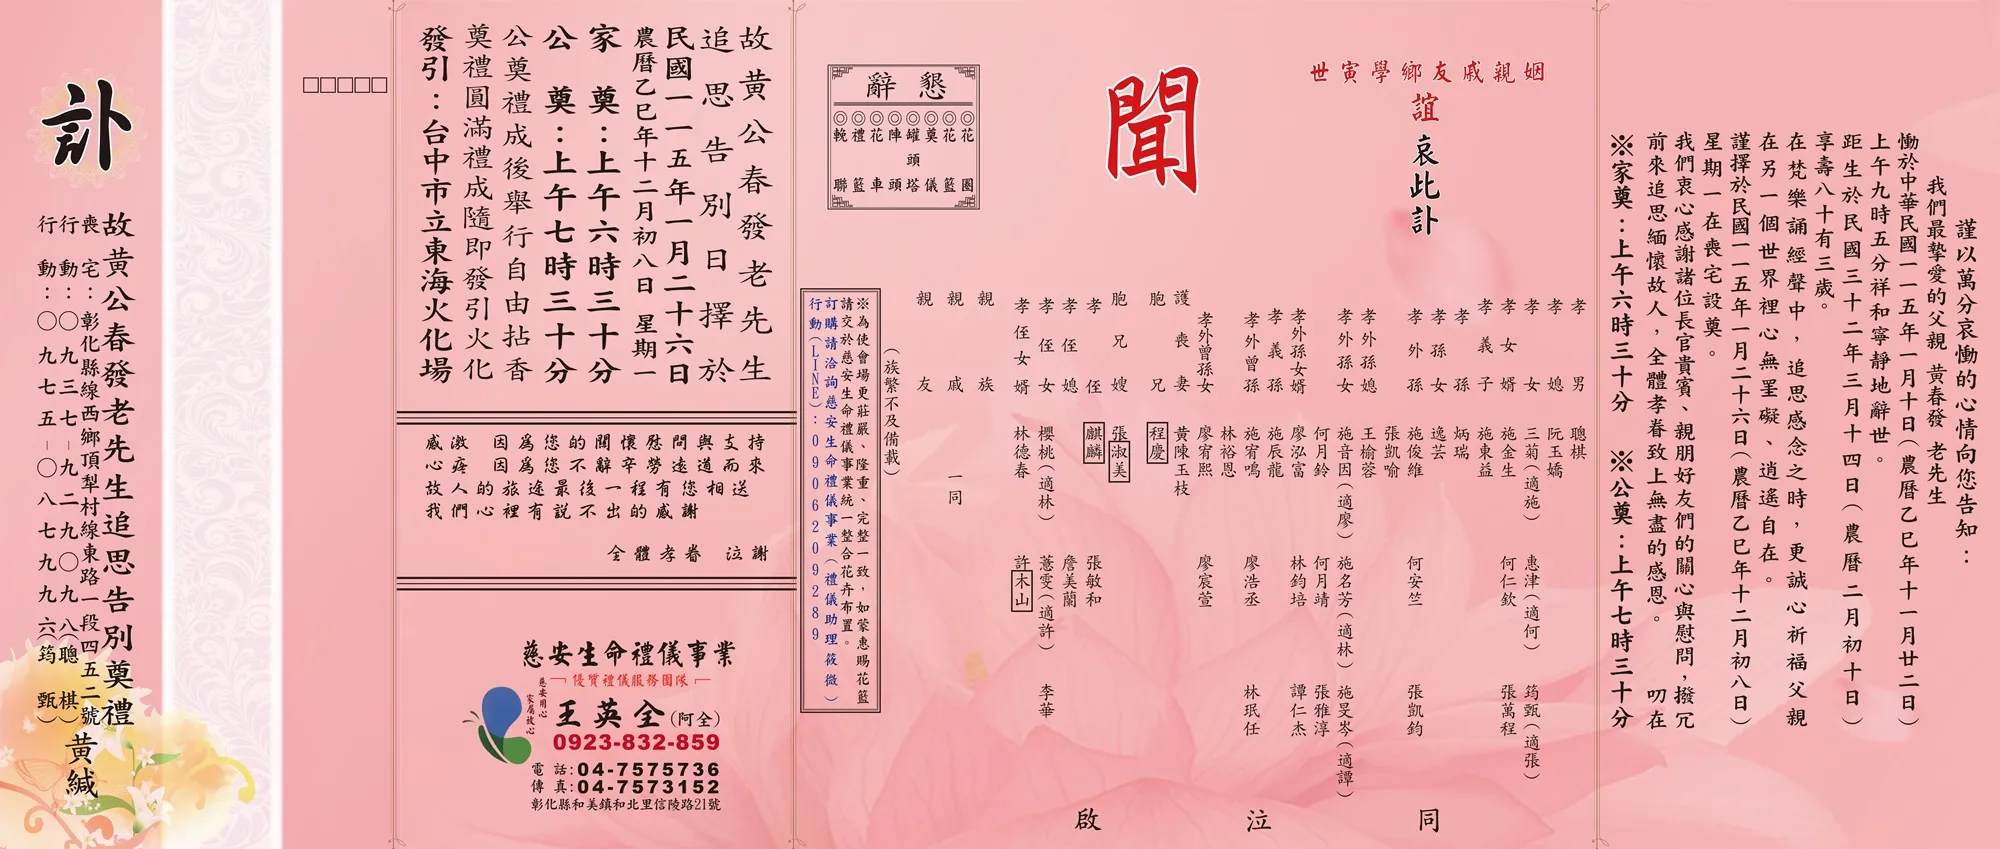 謹以萬分哀慟的心情向您告知：
我們最摯愛的父親 黃春發 老先生
慟於中華民國一一五年一月十日（農曆乙巳年十一月廿二日）
上午九時五分祥和寧靜地辭世。
距生於民國三十二年三月十四日（農曆二月初十日）
享壽八十有三歲。
在梵樂誦經聲中，追思感念之時，更誠心祈福父親
在另一個世界裡心無罣礙、逍遙自在。
謹擇於民國一一五年一月二十六日（農曆乙巳年十二月初八日）
星期一在喪宅設奠。
我們衷心感謝諸位長官貴賓、親朋好友們的關心與慰問，撥冗
前來追思緬懷故人，全體孝眷致上無盡的感恩。 叨在
※家奠：上午六時三十分 ※公奠：上午七時三十分
姻親戚友鄉學寅世
誼
哀此訃
聞
孝男 聰棋
孝媳 阮玉嬌
孝女 三菊（適施） 惠津（適何） 筠甄（適張）
孝女婿 施金生 何仁欽 張萬程
孝義子 施東益
孝孫 炳瑞
孝孫女 逸芸
孝外孫 施俊維 何安竺 張凱鈞
張凱喻
孝外孫媳 王榆蓉
孝外孫女 施音因（適廖） 施名芳（適林） 施旻岑（適譚）
何月鈴 何月靖 張雅淳
孝外孫女婿 廖泓富 林鈞培 譚仁杰
孝義孫 施辰龍
孝外曾孫 施宥鳴 廖浩丞 林珉任
林裕恩
孝外曾孫女 廖宥熙 廖宸萱
護喪妻 黃陳玉枝
胞兄 程慶
胞兄嫂 張淑美
孝侄 麒麟 張敏和
孝侄媳 詹美蘭
孝侄女 櫻桃（適林） 薏雯（適許） 李華
孝侄女婿 林德春 許木山
親族
親戚 一同
親友
（族繁不及備載）
同泣啟
懇辭
◎花圈
◎花籃
◎奠儀
◎罐頭塔
◎陣頭
◎花車
◎禮籃
◎輓聯
※為使會場更莊嚴、隆重、完整一致，如蒙惠賜花籃
請交於慈安生命禮儀事業統一整合花卉布置。
訂購請洽詢慈安生命禮儀事業（禮儀助理筱微）
行動(LINE)：0906209289
故黃公春發老先生
追思告別日擇於
民國一一五年一月二十六日
農曆乙巳年十二月初八日 星期一
家奠：上午六時三十分
公奠：上午七時三十分
公奠禮成後舉行自由拈香
奠禮圓滿禮成隨即發引火化
發引：台中市立東海火化場
感激 因為您的關懷慰問與支持
心疼 因為您不辭辛勞遠道而來
故人的旅途最後一程有您相送
我們心裡有說不出的感謝
全體孝眷 泣謝
慈安生命禮儀事業
優質禮儀服務團隊
慈安用心
家屬放心
王英全(阿全)
0923-832-859
電話:04-7575736
傳真:04-7573152
彰化縣和美鎮和北里信陵路21號
□□□□□
訃
故黃公春發老先生追思告別奠禮
喪宅：彰化縣線西鄉頂犁村線東路一段四五二號
行動：〇九三七-九二九〇九八（聰棋）
行動：〇九七五-〇八七九九六（筠甄）
黃緘